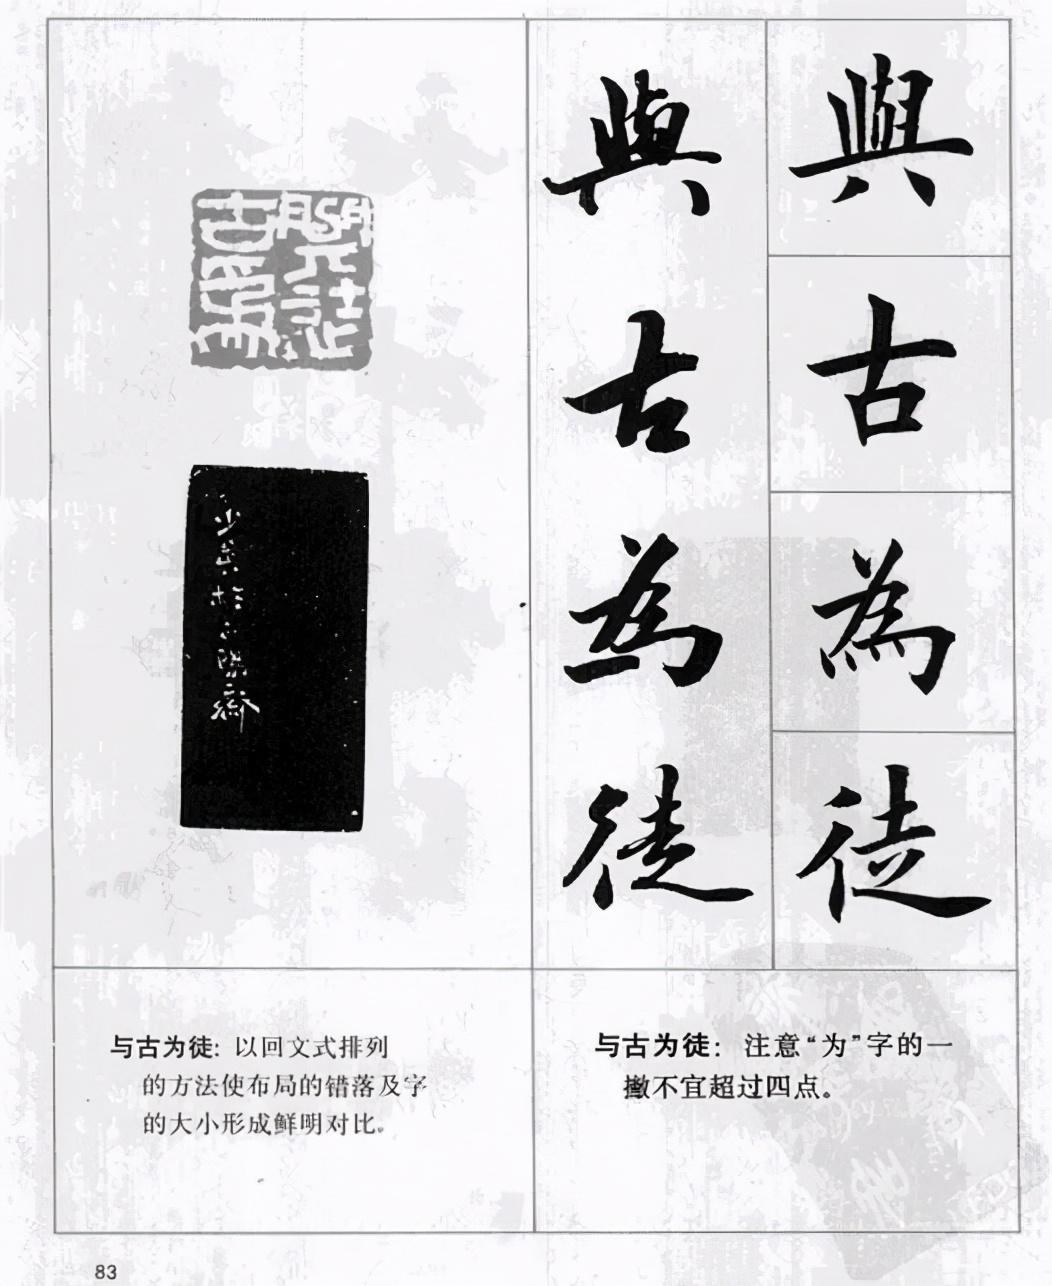 與古為徒
與古為徒
与古为徒：以回文式排列
的方法使布局的错落及字
的大小形成鲜明对比。
与古为徒：注意“为”字的一
撇不宜超过四点。
83